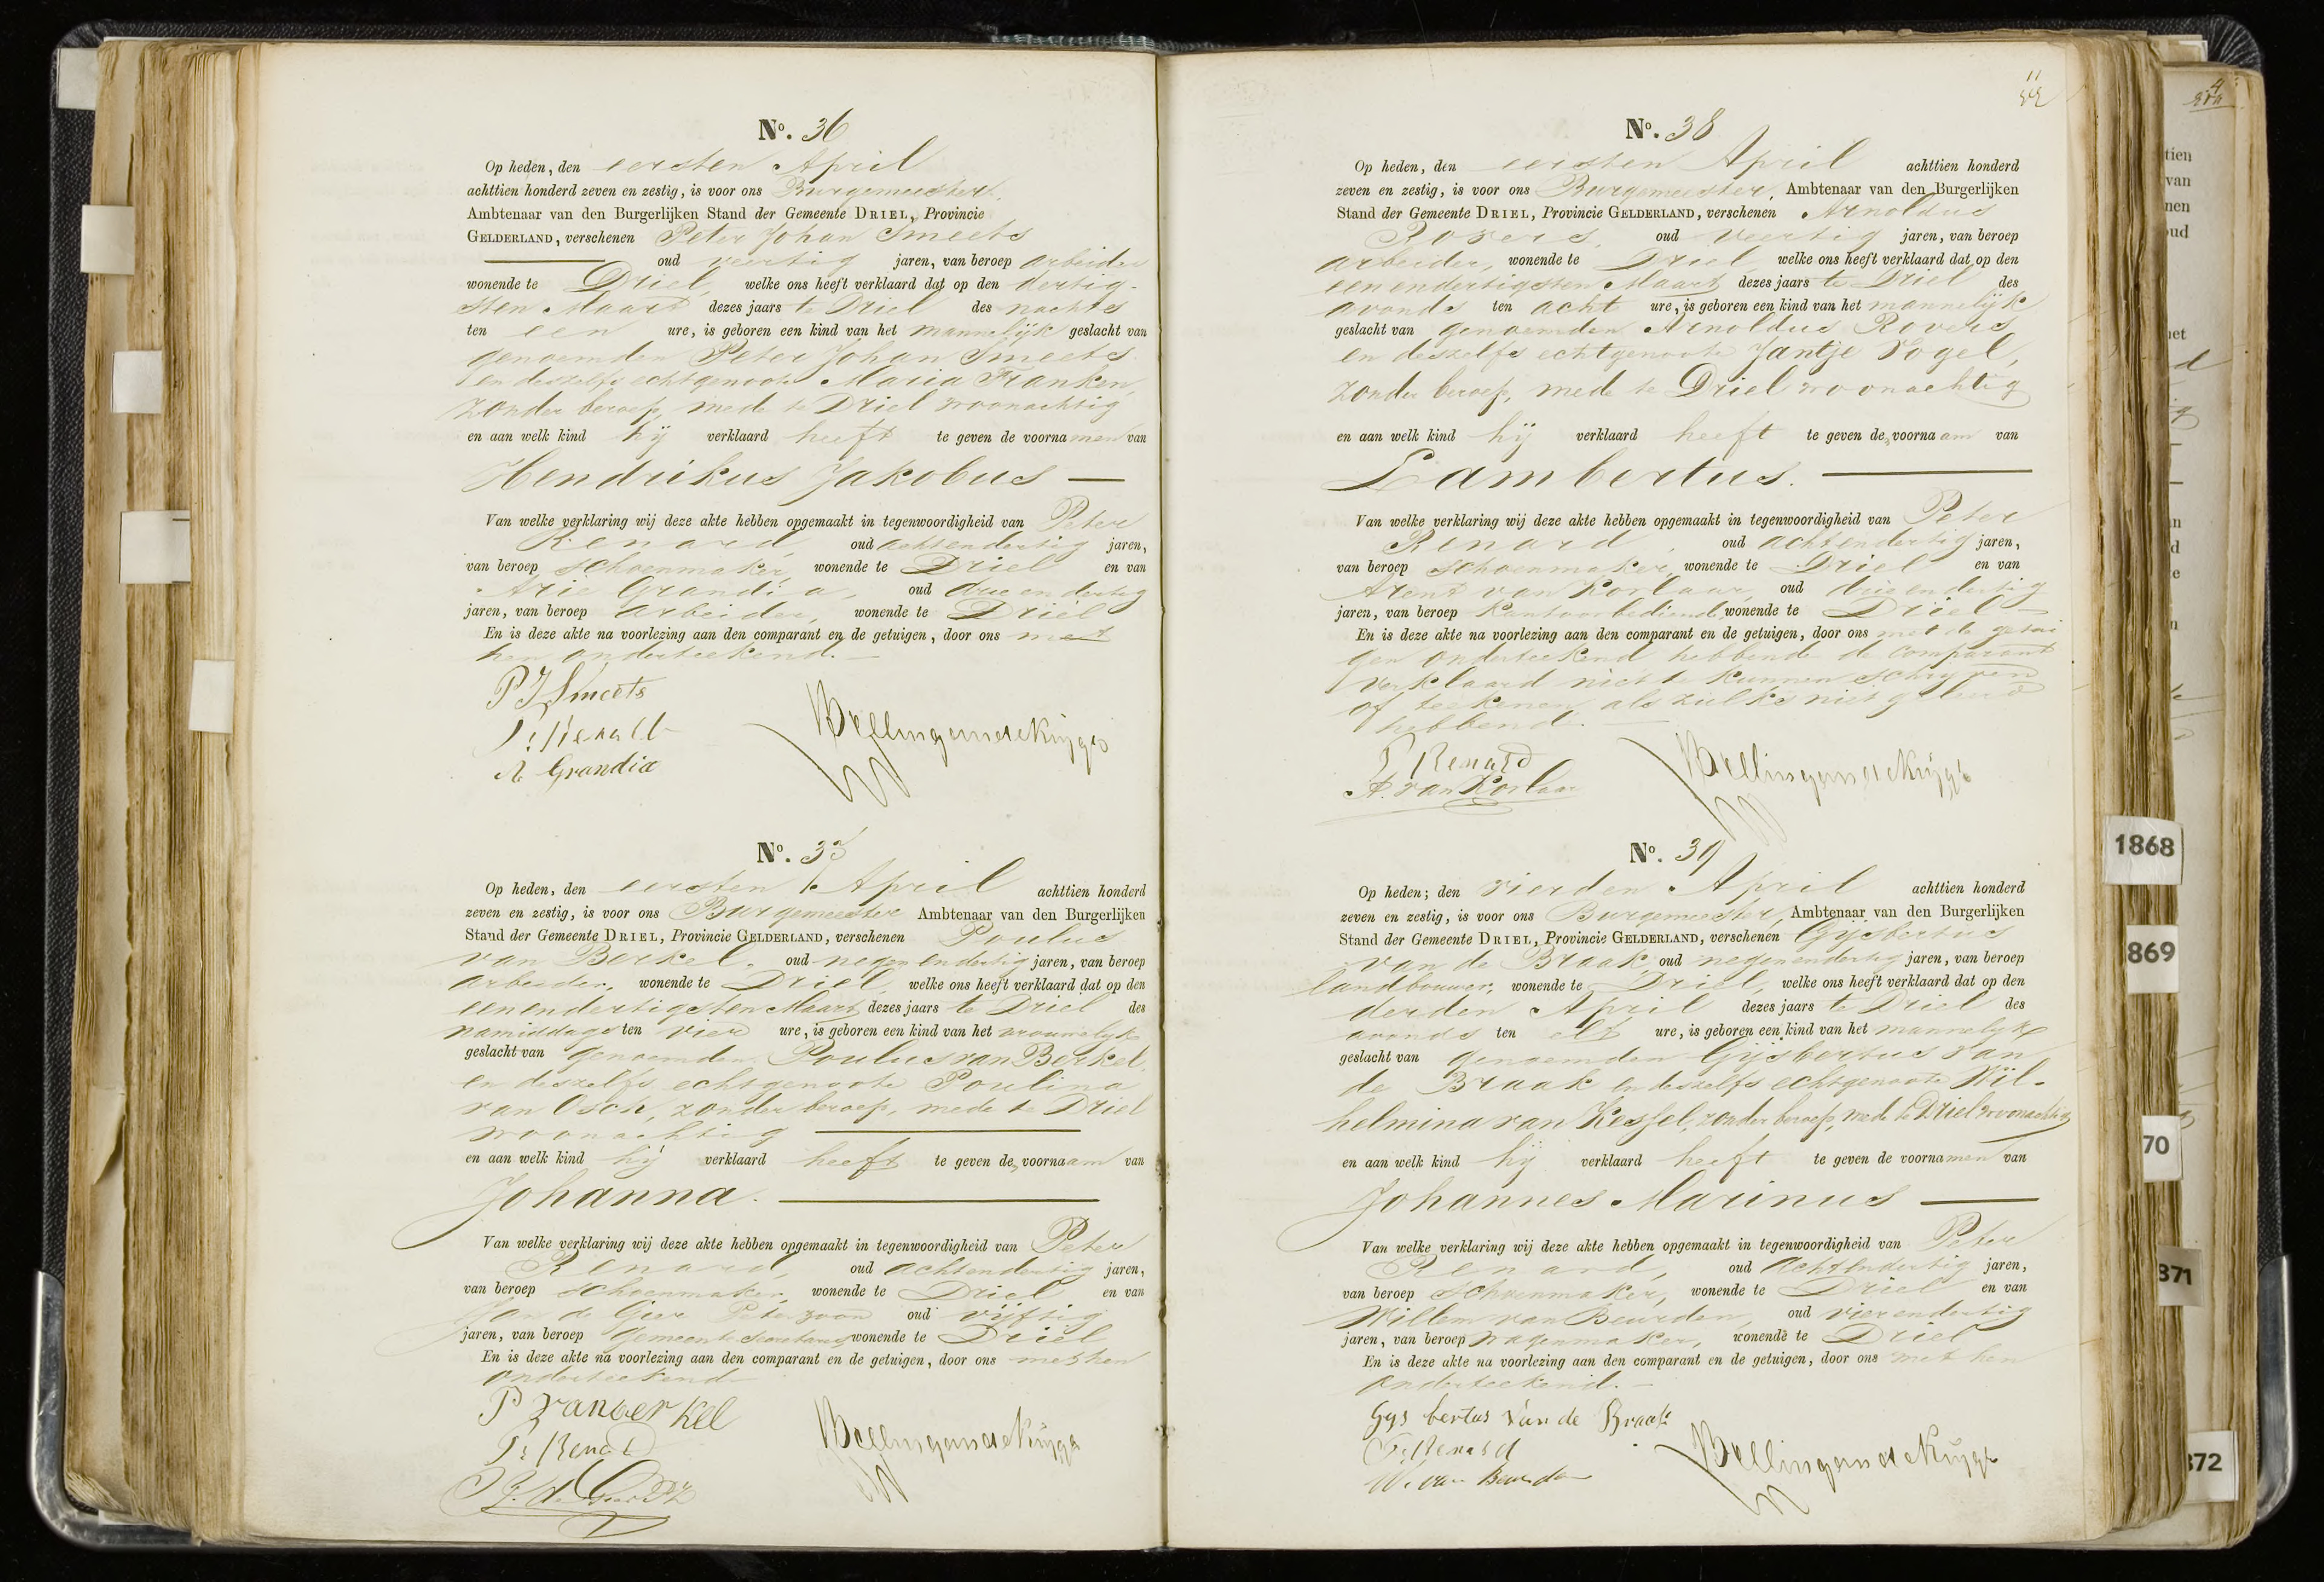 No. 36
Op heden, den eersten April
achttien honderd zeven en zestig, is voor ons Burgemeester,
Ambtenaar van den Burgerlijken Stand der Gemeente DRIEL, Provincie
GELDERLAND, verschenen Peter Johan Smeets
oud veertig jaren, van beroep arbeider
wonende te Driel, welke ons heeft verklaard dat op den dertig-
sten Maart dezes jaars te Driel des nachts
ten een ure, is geboren een kind van het mannelijk geslacht van
genoemden Peter Johan Smeets
en deszelfs echtgenoote Maria Franken,
zonder beroep, mede te Driel woonachtig
en aan welk kind hij verklaard heeft te geven de voornamen van
Hendrikus Jakobus
Van welke verklaring wij deze akte hebben opgemaakt in tegenwoordigheid van Peter
Renard, oud achtendertig jaren,
van beroep schoenmaker, wonende te Driel en van
Arie Grandia, oud drie en dertig
jaren, van beroep arbeider, wonende te Driel
En is deze akte na voorlezing aan den comparant en de getuigen, door ons met
hen onderteekend.
P J Smeets
P: Renard
A Grandia
No. 37
Op heden, den eersten April achttien honderd
zeven en zestig, is voor ons Burgemeester Ambtenaar van den Burgerlijken
Stand der Gemeente DRIEL, Provincie GELDERLAND, verschenen Poulus
van Berkel, oud negen en dertig jaren, van beroep
arbeider, wonende te Driel, welke ons heeft verklaard dat op den
eenendertigsten Maart dezes jaars te Driel des
namiddags ten vier ure, is geboren een kind van het vrouwelijke
geslacht van genoemden Poulus van Berkel,
en deszelfs echtgenoote Poulina
van Osch, zonder beroep, mede te Driel
woonachtig
en aan welk kind hij verklaard heeft te geven de voornaam van
Johanna.
Van welke verklaring wij deze akte hebben opgemaakt in tegenwoordigheid van Peter
Renard, oud achtendertig jaren,
van beroep schoenmaker, wonende te Driel en van
Jan de Gier Peterzoon oud vijftig
jaren, van beroep Gemeente Secretaris wonende te Driel
En is deze akte na voorlezing aan den comparant en de getuigen, door ons met hen
onderteekend
P van Berkel
P: Renard
J. de Gier PZ
11
No. 38
Op heden, den eersten April achttien honderd
zeven en zestig, is voor ons Burgemeester, Ambtenaar van den Burgerlijken
Stand der Gemeente DRIEL, Provincie GELDERLAND, verschenen Arnoldus
Rovers, oud veertig jaren, van beroep
arbeider, wonende te Driel, welke ons heeft verklaard dat op den
eenendertigsten Maart dezes jaars te Driel des
avonds ten acht ure, is geboren een kind van het mannelijk
geslacht van genoemden Arnoldus Rovers
en deszelfs echtgenoote Jantje Vogel,
zonder beroep, mede te Driel woonachtig
en aan welk kind hij verklaard heeft te geven de voornaam van
Lambertus.
Van welke verklaring wij deze akte hebben opgemaakt in tegenwoordigheid van Peter
Renard, oud achtendertig jaren,
van beroep schoenmaker, wonende te Driel en van
Arent van Korlaar, oud drie en dertig
jaren, van beroep Kantoorbediende, wonende te Driel
En is deze akte na voorlezing aan den comparant en de getuigen, door ons met de getui
gen onderteekend hebbende de comparant
verklaard niet te kunnen schrijven
of teekenen als zulks niet geleerd
hebbende.
P Renard
A. van Korlaar
No. 39
Op heden; den vierden April achttien honderd
zeven en zestig, is voor ons Burgemeester, Ambtenaar van den Burgerlijken
Stand der Gemeente DRIEL, Provincie GELDERLAND, verschenen Gijsbertus
van de Braak, oud negenendertig jaren, van beroep
landbouwer, wonende te Driel, welke ons heeft verklaard dat op den
derden April dezes jaars te Driel des
avonds ten elf ure, is geboren een kind van het mannelijk
geslacht van genoemden Gijsbertus van
de Braak en deszelfs echtgenoote Wil-
helmina van Kessel, zonder beroep, mede te Driel woonachtig
en aan welk kind hij verklaard heeft te geven de voornamen van
Johannes Marinus
Van welke verklaring wij deze akte hebben opgemaakt in tegenwoordigheid van Peter
Renard, oud achtendertig jaren,
van beroep schoenmaker, wonende te Driel en van
Willem van Beurden, oud vierendertig
jaren, van beroep wagenmaker, wonende te Driel
En is deze akte na voorlezing aan den comparant en de getuigen, door ons met hen
onderteekend.
Gys bertus van de Braak
P: Renard
W. van Beurden
1868
869
70
371
372